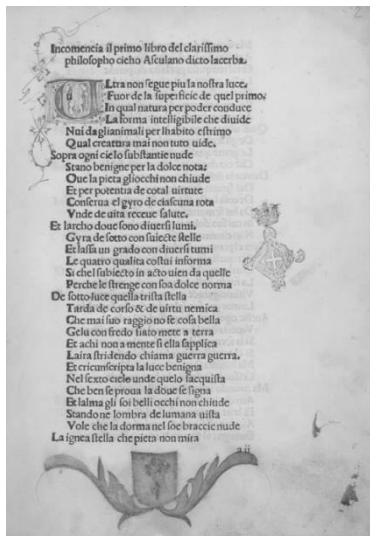 Incomencia il primo libro del clarissimo
philosopho cicho Asculano dicto lacerba.
Ultra non segue piu la nostra luce.
Fuor de la superficie de quel primo.
In qual natura per poder conduce
La forma intelligibile che diuide
Nui da glianimali per lhabito estrimo
Qual creatura mai non tuto uide.
Sopra ogni cielo substantie nude
Stano benigne per la dolce nota:
Que la pieta gliocchi non chiude
Et per potentia de cotal uirtute
Conserua el gyro de ciascuna rota
Vnde de uita receue salute.
Et larcho doue sono diuersi lumi.
Gyra de sotto con suiecte stelle
Et lassa un grado con diuersi tumi
Le quatro qualita costui informa
Si chel subiecto in acto uien da quelle
Perche le strenge con soa dolce norma
De sotto luce quella trista stella
Tarda de corso & de uirtu nemica
Che mai suo raggio no fe cosa bella
Gelu con fredo fiato mete a terra
Et achi non a mente si ella sapplica
Laira stridendo chiama guerra guerra.
Et circunscripta la luce benigna
Nel sexto cielo unde quelo sacquista
Che ben se proua la doue se signa
Et lalma gli soi belli occhi non chiude
Stando ne lombra de lumana uista
Vole che la dorma nel soe braccie nude
La ignea stella che pieta non mira
a ii